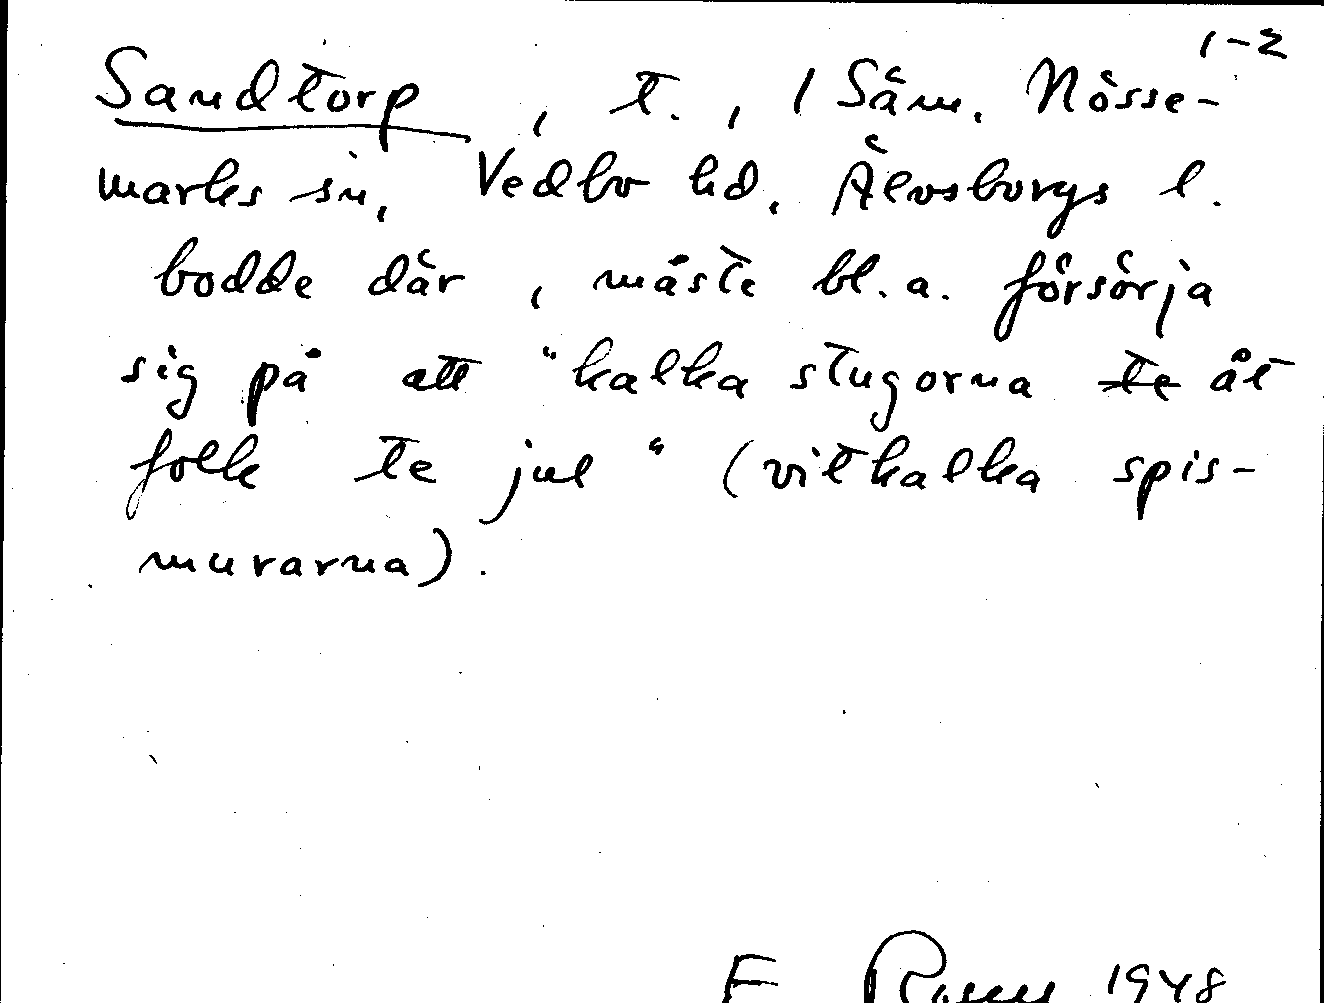 1-2
Sandtorp, t., 1 Säm. Nösse-
marks sn, Vedbo hd. Älvsborgs l.
bodde där, måste bl.a. försörja
sig på att "kalka stugorna te åt
folk te jul" (vitkalka spis-
murarna).
F 1948